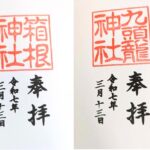 箱根
神社
奉拝
令和七年
三月十三日
九頭龍
神社
奉拝
令和七年
三月十三日